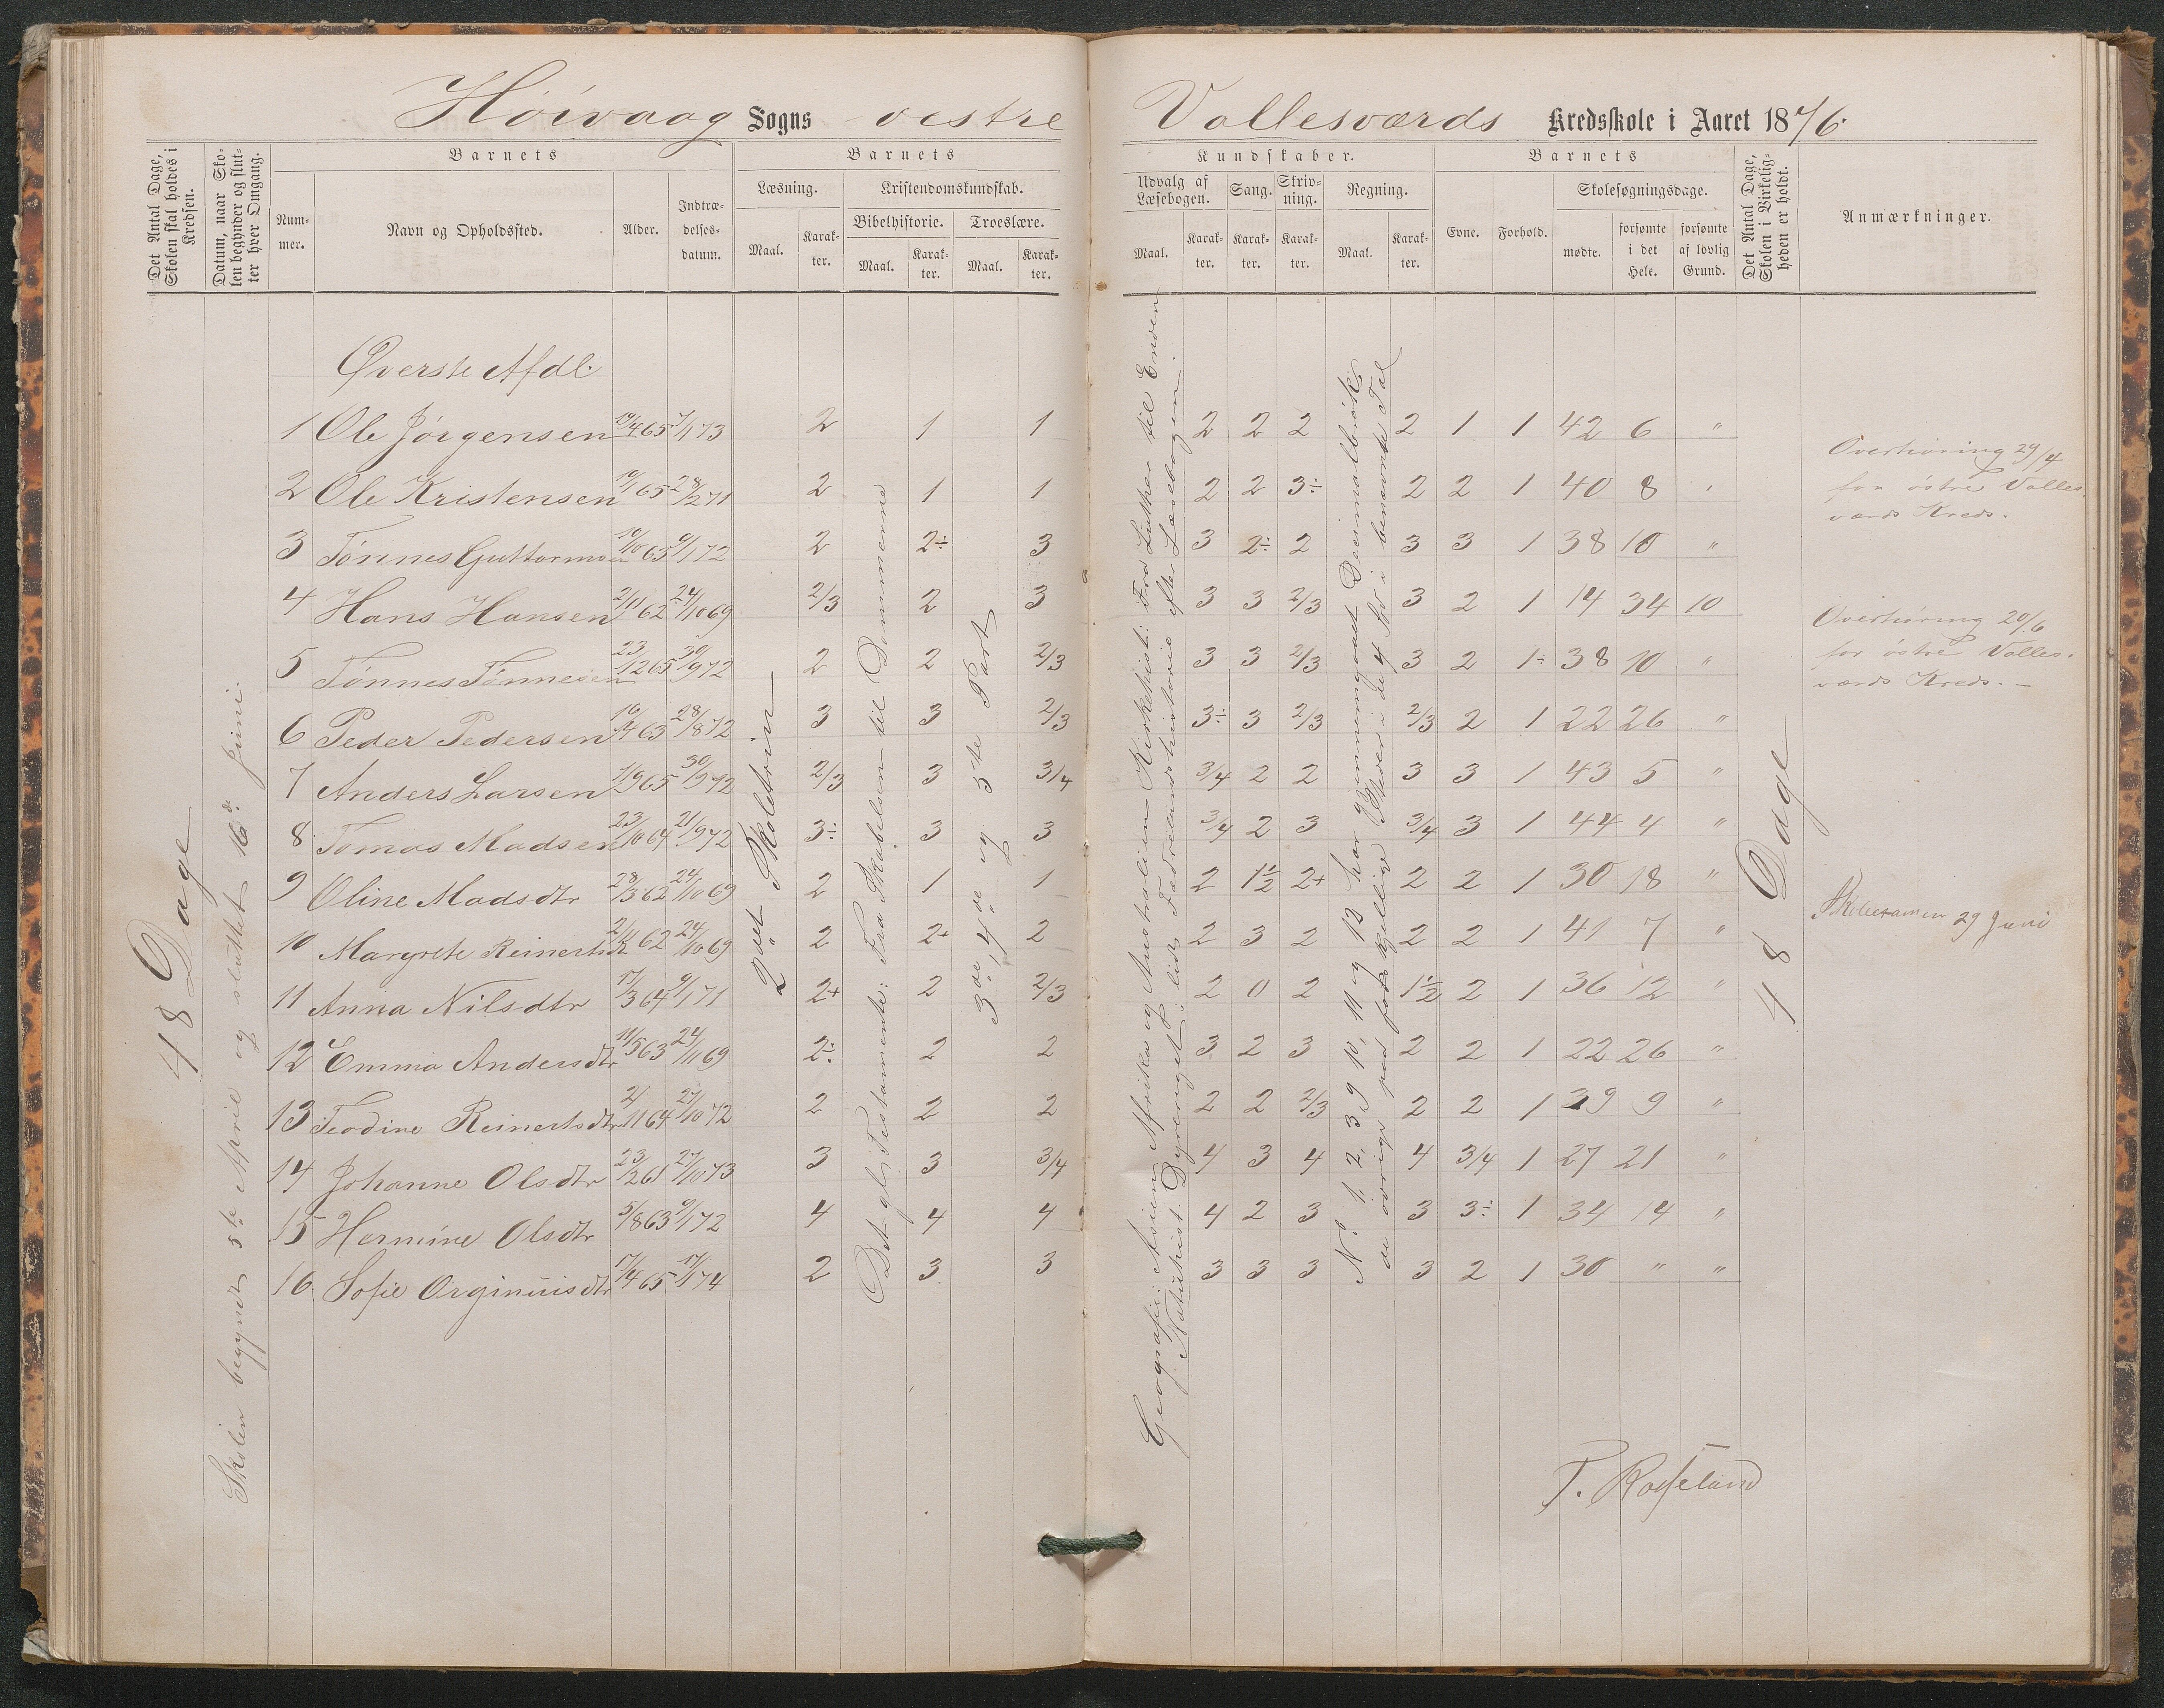 Høivaag Sogns vestre Vallesværds Kredsskole i Aaret 1876.
Det Antal Dage, Skolen skal holdes i Kredsen.
Datum, naar Skolen begynder og slutter hver Omgang.
Barnets
Nummer.
Navn og Opholdssted.
Alder.
Indtrædelsesdatum.
Barnets
Læsning.
Maal.
Karakter.
Kristendomskundskab.
Bibelhistorie.
Maal.
Karakter.
Troeslære.
Maal.
Karakter.
Kundskaber.
Udvalg af Læsebogen.
Maal.
Karakter.
Sang.
Karakter.
Skrivning.
Karakter.
Regning.
Maal.
Karakter.
Barnets
Evne.
Forhold.
Skolesøgningsdage.
mødte.
forsømte i det Hele.
forsømte af lovlig Grund.
Det Antal Dage, Skolen i Virkeligheden er holdt.
Anmærkninger.
48 Dage
Skolen begyndt 5te April og sluttet 16de Juni.
Øverste Afdl.
1 Ole Jørgensen 19/4 65 7/1 73 2 1 1 2 2 2 2 1 1 42 6 "
2 Ole Kristensen 10/1 65 28/2 71 2 1 1 2 2 3÷ 2 2 1 40 8 "
3 Tønnes Guttormsen 10/10 65 9/1 72 2 2÷ 3 3 2÷ 2 3 3 1 38 10 "
4 Hans Hansen 2/11 62 24/10 69 2/3 2 3 3 3 2/3 3 2 1 14 34 10
5 Tønnes Tønnesen 23/12 65 30/9 72 2 2 2/3 3 3 2/3 3 2 1÷ 38 10 "
6 Peder Pedersen 16/4 63 28/8 72 3 3 2/3 3÷ 3 2/3 2/3 2 1 22 26 "
7 Anders Larsen 1/9 65 30/9 72 2/3 3 3/4 3/4 2 2 3 3 1 43 5 "
8 Tomas Madsen 23/10 64 21/9 72 3÷ 3 3 3/4 2 3 3/4 3 1 44 4 "
9 Oline Madsdtr 28/3 62 24/10 69 2 1 1 2 1½ 2+ 2 2 1 30 18 "
10 Margrete Reinertsdtr 2/11 62 24/10 69 2 2+ 2 2 3 2 2 2 1 41 7 "
11 Anna Nilsdtr 17/3 64 9/1 71 2+ 2 2/3 2 0 2 1½ 2 1 36 12 "
12 Emma Andersdtr 11/5 63 24/10 69 2÷ 2 2 3 2 3 2 2 1 22 26 "
13 Teodine Reinertsdtr 2/11 64 27/10 72 2 2 2 2 2 2/3 2 2 1 39 9 "
14 Johanne Olsdtr 23/2 61 27/10 73 3 3 3/4 4 3 4 4 3/4 1 27 21 "
15 Hermine Olsdtr 5/8 63 9/1 72 4 4 4 4 2 3 3 3÷ 1 34 14 "
16 Sofie Orginiusdtr 17/4 65 17/1 74 2 3 3 3 3 3 3 2 1 30 " "
2det Skoletrin
Det gl. Testamente: Fra Skabelsen til Dommerne
3de, 4de og 5te Part
Geografi: Asien, Afrika og Australien. Kirkehist: Fra Luther til Enden
Naturhist: Dyreriget, lidt Fædrelandshistorie efter Læsebogen.
No 1, 2, 3, 9, 10, 11 og 12 har gjennemgaaet Decimalbrøk,
de øvrige paa forskjellige Steder i de 4 Sp. i benævnte Tal
48 Dage
Overhøring 29/4
for østre Vallesværds Kreds.
Overhøring 20/6
for østre Vallesværds Kreds. —
Skoleexamen 29 Juni
T. Rosseland